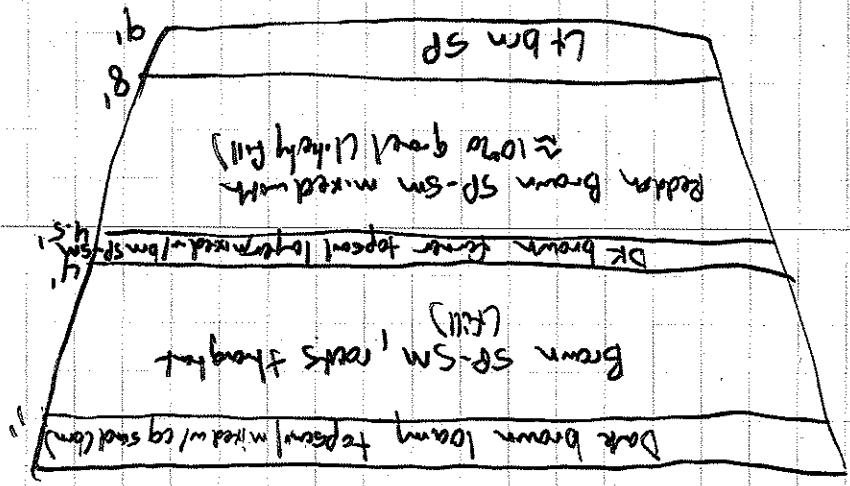 Dark brown loamy topsoil (mixed w/ cg sand loam)
1'
Brown SP-SM, roots throughout
(fill)
4'
DK brown former topsoil layer mixed w/ brn SP-SM
4.5'
Reddish Brown SP-SM mixed with
≈10% gravel (likely fill)
8'
Lt brn SP
9'